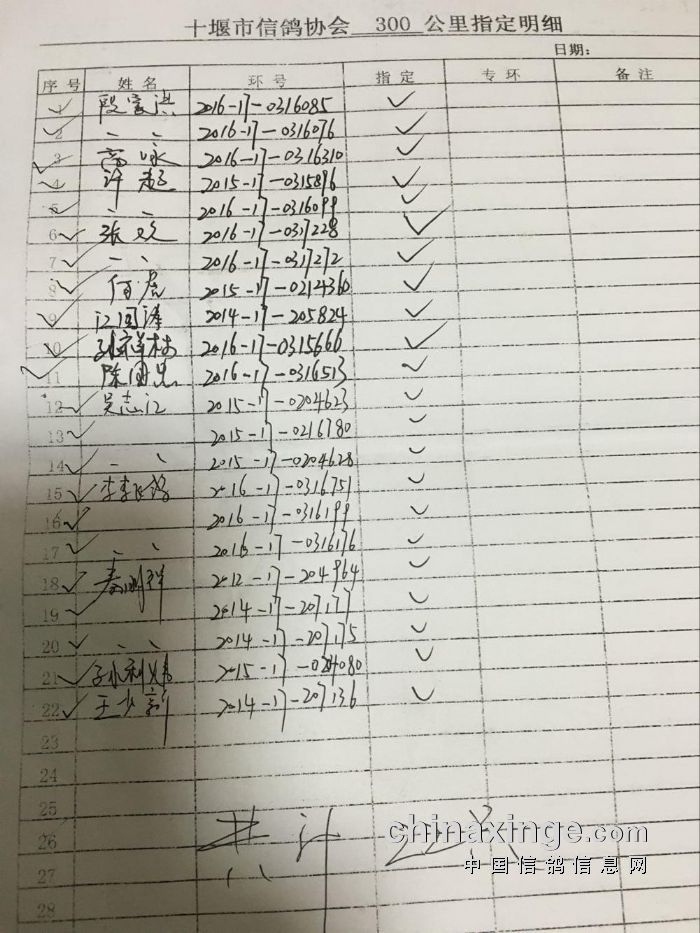 十堰市信鸽协会 300 公里指定明细
日期:
序号 姓名 环号 指定 专环 备注
1 2016-17-0316085 ✓
2 〃 2016-17-0316076 ✓
3 高咏 2016-17-0316310 ✓
4 许超 2015-17-0315896 ✓
5 〃 2016-17-0316099 ✓
6 张欢 2016-17-0317228 ✓
7 〃 2016-17-0317272 ✓
8 何虎 2015-17-0214360 ✓
9 江国涛 2014-17-205824 ✓
10 2016-17-0315666 ✓
11 陈国忠 2016-17-0316513 ✓
12 吴志江 2015-17-0204623 ✓
13 2015-17-0216780 ✓
14 〃 2015-17-0204628 ✓
15 2016-17-0316751 ✓
16 2016-17-0316199 ✓
17 〃 2016-17-0316176 ✓
18 2012-17-204964 ✓
19 2014-17-207177 ✓
20 〃 2014-17-207175 ✓
21 2015-17-0204080 ✓
22 王少新 2014-17-207136 ✓
23
24
25
26 共计
27
28
chinaxinge.com
中国信鸽信息网